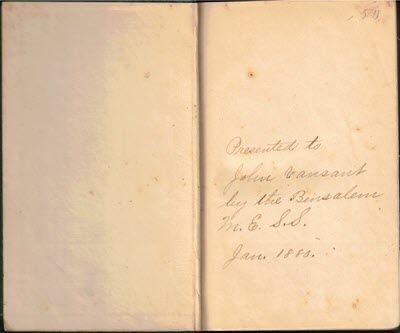 Presented to
John Vansant
by the Bensalem
M. E. S. S.
Jan. 1880.